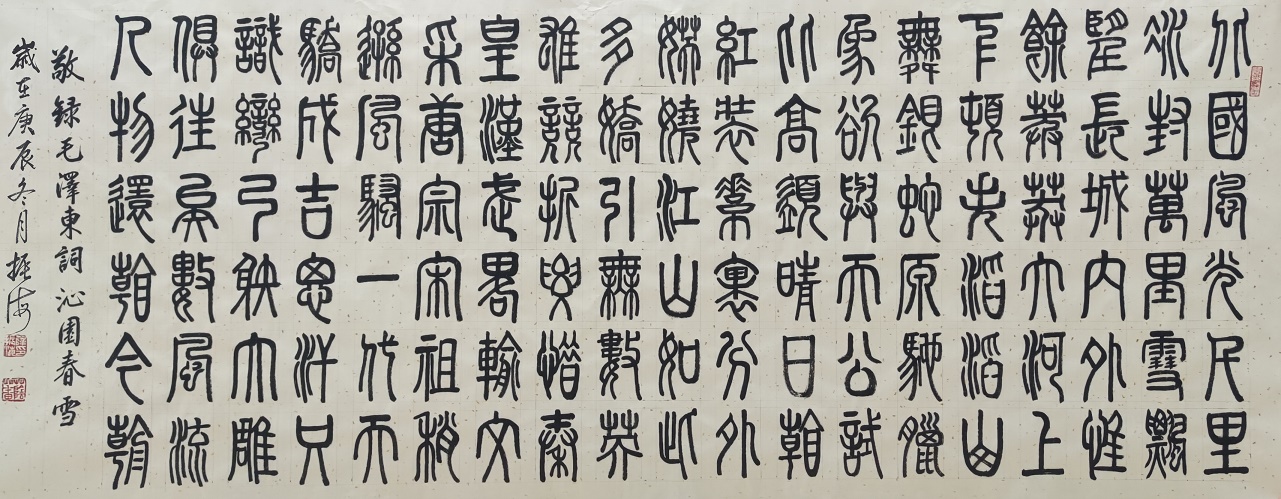 北國風光千里
冰封萬里雪飄
望長城内外惟
餘莽莽大河上
下頓失滔滔山
舞銀蛇原馳臘
象欲與天公試
比高須晴日看
紅裝素裹分外
妖嬈江山如此
多嬌引無數英
雄競折腰惜秦
皇漢武略輸文
采唐宗宋祖稍
遜風騷一代天
驕成吉思汗只
識彎弓射大雕
俱往矣數風流
人物還看今朝
敬録毛澤東詞沁園春雪
歲在庚辰冬月振海